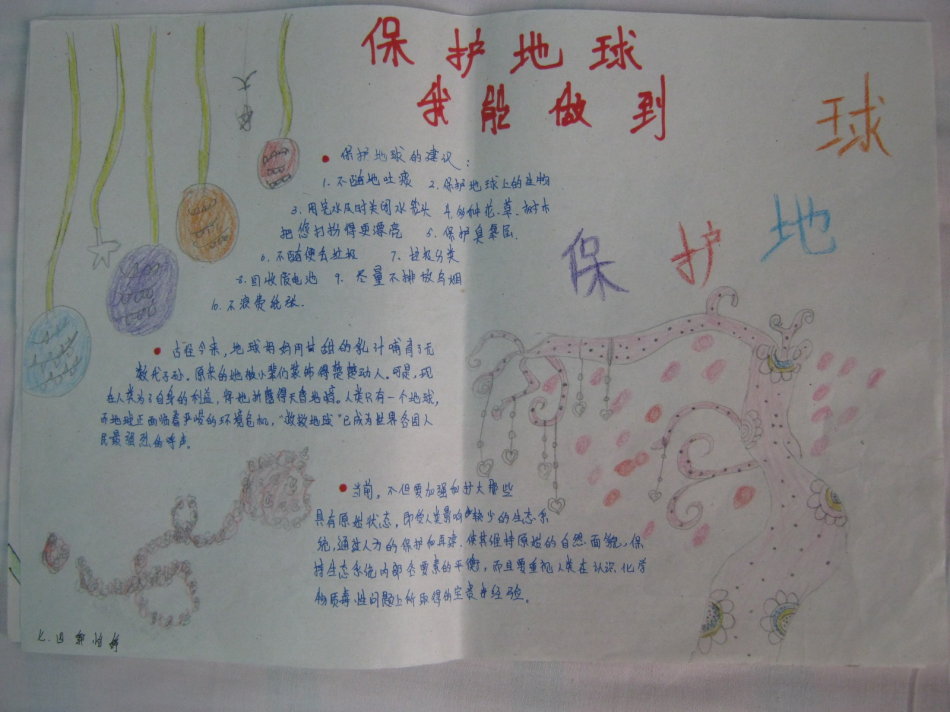 保护地球
我能做到
球
保护地
保护地球的建议：
1.不随地吐痰 2.保护地球上的生物
3.用完水及时关闭水龙头 4.多种花、草、树木
把您打扮得更漂亮 5.保护臭氧层.
6.不随便丢垃圾 7.垃圾分类
8.回收废电池 9.尽量不排放乌烟
10.不浪费纸张.
古往今来，地球妈妈用甘甜的乳汁哺育了无
数代子孙。原来的她被小辈们装饰得楚楚动人。可是，现
在人类为了自身的利益，将她折磨得天昏地暗。人类只有一个地球，
而地球正面临着严峻的环境危机，“救救地球”已成为世界各国人
民最强烈的呼声。
当前，不但要加强
具有原始状态，即受人类影响较少的生态系
统，通过人力的保护和，使其维持原始的自然面貌，保
持生态系统内部各要素的平衡，而且要重视人类在认识化学
物质毒性问题上所取得的宝贵经验。